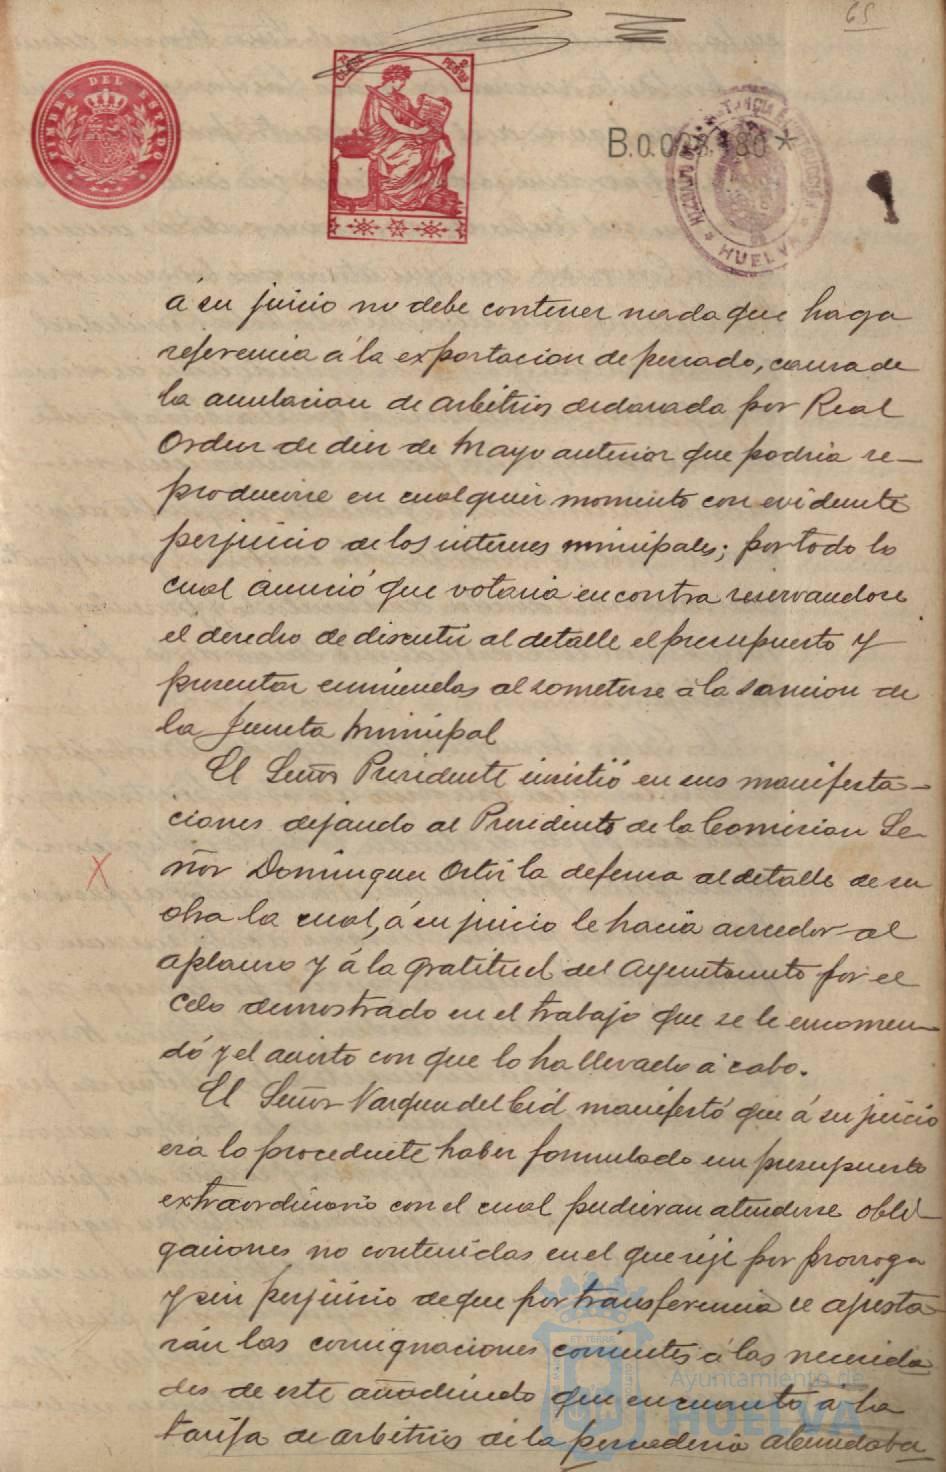 65
TIMBRE DEL ESTADO
HUELVA
á su juicio no debe contener nada que haga
referencia á la exportacion de pescado, causa de
la anulacion de arbitrios declarada por Real
Orden de diez de Mayo anterior que podria re-
producirse en cualquier momento con evidente
perjuicio de los intereses municipales; por todo lo
cual anunció que votaria en contra reservandose
el derecho de discutir al detalle el presupuesto y
presentar enmiendas al someterse á la sancion de
la Junta Municipal
El Señor Presidente insistió en sus manifesta-
ciones dejando al Presidente de la Comision Se-
ñor Dominguez Ortiz la defensa al detalle de su
obra la cual, á su juicio le hacia acreedor al
aplauso y á la gratitud del Ayuntamiento por el
celo demostrado en el trabajo que se le encomen-
dó y el acierto con que lo ha llevado á cabo.
El Señor Vazquez del Cid manifestó que á su juicio
era lo procedente haber formulado un presupuesto
extraordinario con el cual pudieran atenderse obli-
gaciones no contenidas en el que rije por prorroga
y sin perjuicio de que por transferencia se ajusta-
rán las consignaciones corrientes á las necesida
des de este añadiendo que en cuanto á la
tarifa de arbitrios de la pescaderia abundaba
Ayuntamiento de
HUELVA